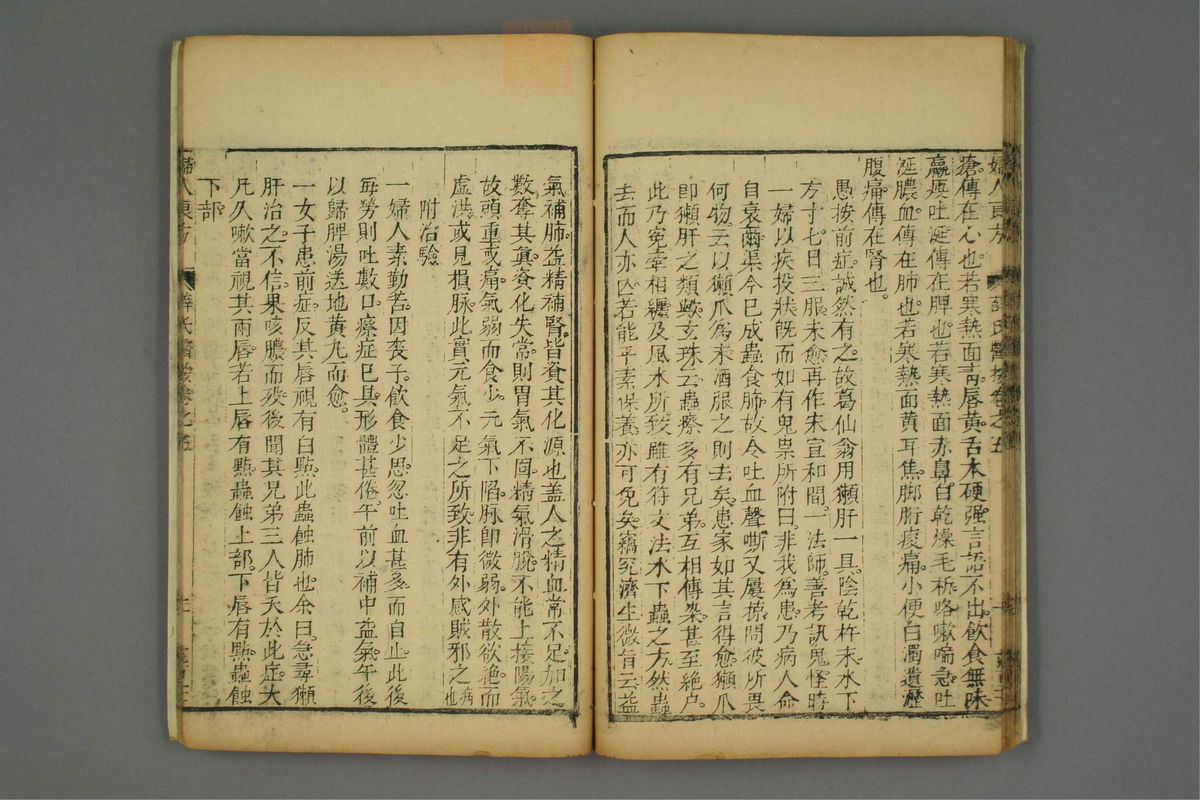 婦人良方
薛氏醫按卷之五
瘡傳在心也若寒熱面靑唇黃舌本硬强言語不出飲食無味
羸瘦吐涎傳在脾也若寒熱面赤鼻白乾燥毛折咯嗽喘急吐
涎膿血傳在肺也若寒熱面黃耳焦脚胻痠痛小便白濁遺瀝
腹痛傳在腎也
愚按前症誠然有之故葛仙翁用獺肝一具陰乾杵末水下
方寸七日三服未愈再作末宣和間一法師善考訊鬼怪時
一婦以疾投狀旣而如有鬼祟所附曰非我爲患乃病人命
自衰爾渠今已成蟲食肺故令吐血聲嘶又屢掠問彼所畏
何物云以獺爪爲末酒服之則去矣患家如其言得愈獺爪
即獺肝之類歟玄珠云蟲瘵多有兄弟互相傳染甚至絶戶
此乃寃牽相纏及風水所致雖有符文法水下蟲之方然蟲
去而人亦亾若能平素保養亦可免矣竊究濟生微旨云益
氣補肺益精補腎皆資其化源也盖人之精血常不足加之
數奪其真資化失常則胃氣不固精氣滑脫不能上接陽氣
故頭重或痛氣弱而食少元氣下陷脉卽微弱外散欲絶而
虛洪或見損脉此實元氣不足之所致非有外感賊邪之病也
附治驗
一婦人素勤苦因喪子飲食少思忽吐血甚多而自止此後
每勞則吐數口瘵症已具形體甚倦午前以補中益氣午後
以歸脾湯送地黃丸而愈
一女子患前症反其唇視有白點此蟲蝕肺也余曰急尋獺
肝治之不信果咳膿而歿後聞其兄弟三人皆夭於此症大
凡久嗽當視其兩唇若上唇有點蟲蝕上部下唇有點蟲蝕
下部
婦人良方
薛氏醫按卷之五